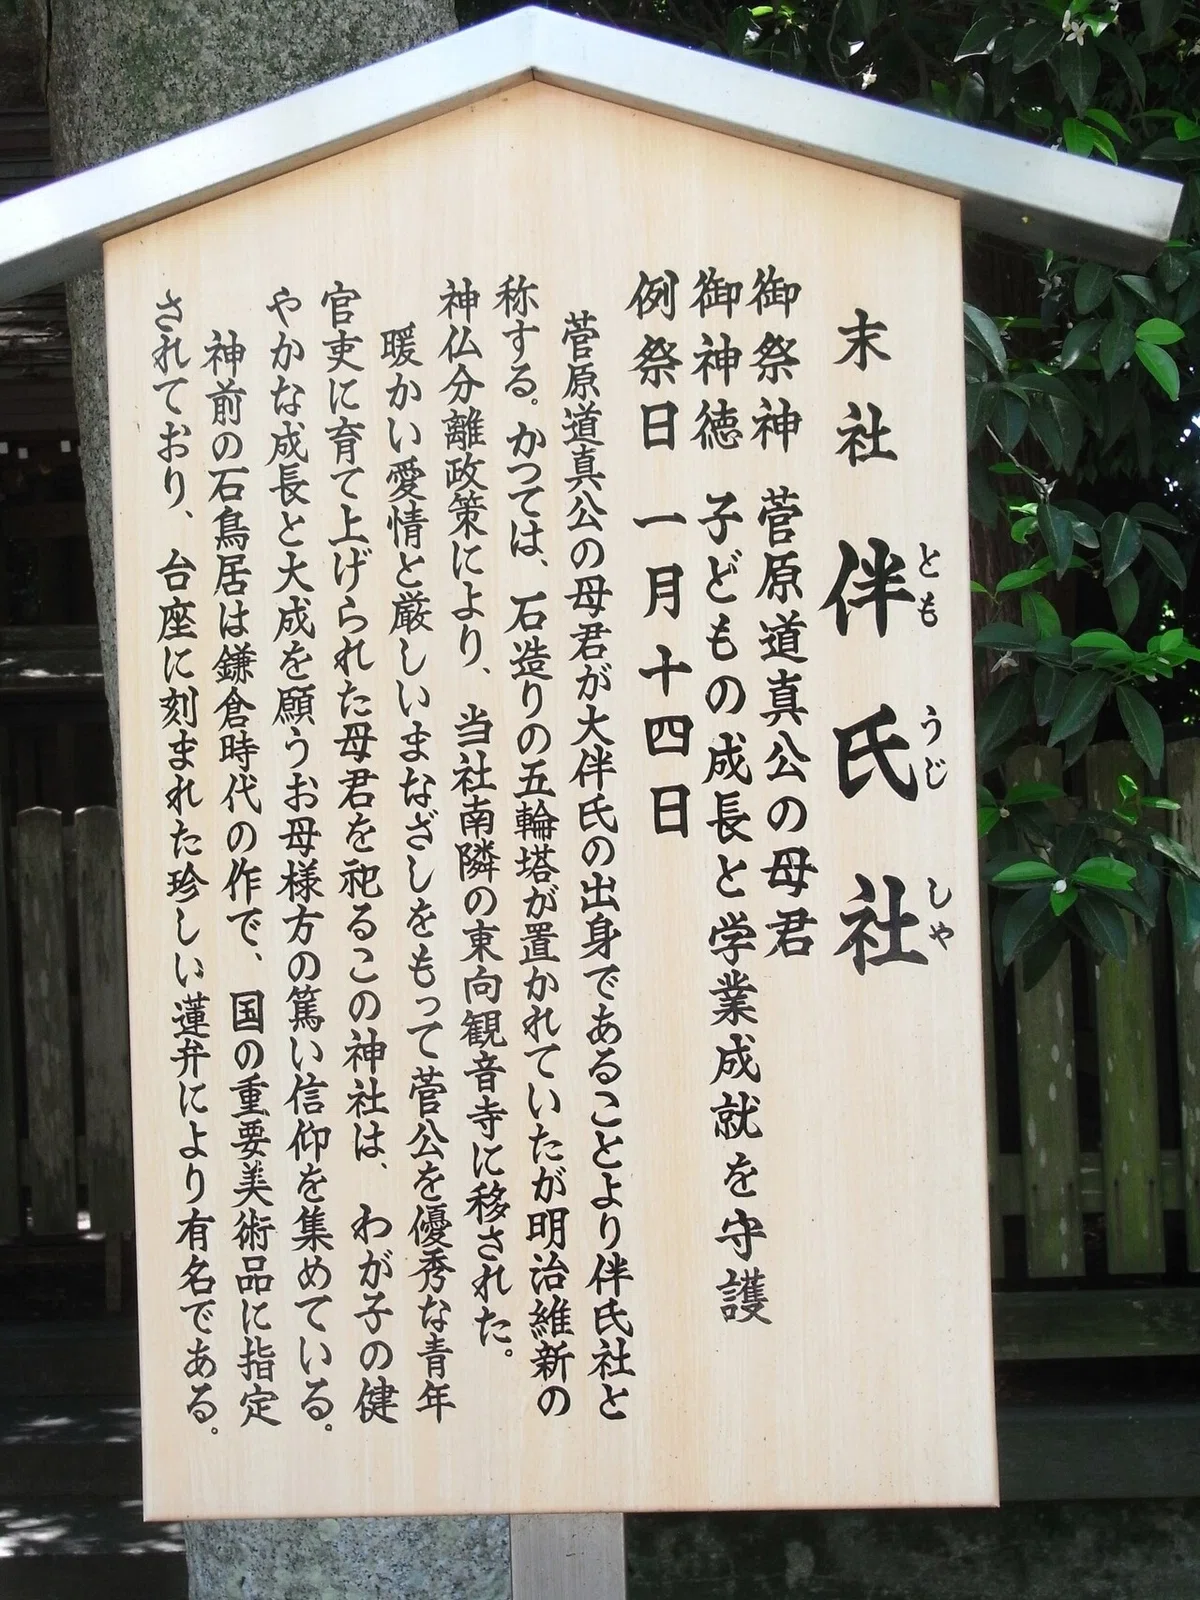 末社 伴氏社
とも うじ しや
御祭神 菅原道真公の母君
御神徳 子どもの成長と学業成就を守護
例祭日 一月十四日
菅原道真公の母君が大伴氏の出身であることより伴氏社と
称する。かつては、石造りの五輪塔が置かれていたが明治維新の
神仏分離政策により、当社南隣の東向観音寺に移された。
暖かい愛情と厳しいまなざしをもって菅公を優秀な青年
官吏に育て上げられた母君を祀るこの神社は、わが子の健
やかな成長と大成を願うお母様方の篤い信仰を集めている。
神前の石鳥居は鎌倉時代の作で、国の重要美術品に指定
されており、台座に刻まれた珍しい蓮弁により有名である。